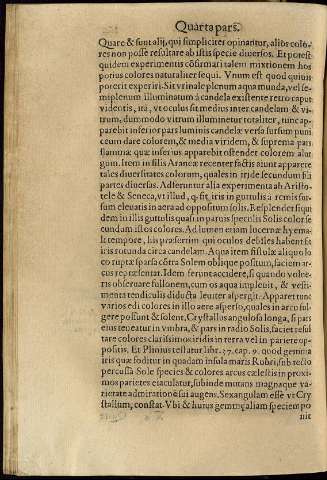 Quarta pars.
Quare & sunt alij, qui simpliciter opinantur, alios colo-
res non posse resultare ab istis specie diuersos. Et potest
quidem experimentis cõfirmari talem mixtionem hos
potius colores naturaliter sequi. Vnum est quod quiuis
poterit experiri. Sit vrinale plenum aqua munda, vel se-
miplenum illuminatum à candela existente retro caput
videntis, ita, vt oculus sit medius inter candelam & vi-
trum, dummodo vitrum illuminetur totaliter, tunc ap-
parebit inferior pars luminis candelæ versa sursum puni
ceum dare colorem, & media viridem, & suprema pars
flammæ quæ inferius apparebit ostendet colorem alur
gum. Item in filis Araneæ recenter factis aiunt apparere
tales diuersitates colorum, quales in iride secundum fili
partes diuersas. Adferuntur alia experimenta ab Aristo-
tele & Seneca, vt illud, q, fit iris in guttulis a remis sur-
sum eleuatis in aera ad oppositum solis. Resplendet siqui
dem in illis guttulis quasi in paruis speculis Solis color se
cundum istos colores. Ad lumen etiam lucernæ hyema-
li tempore, his præsertim qui oculos debiles habent fit
iris rotunda circa candelam. Aqua item fistulæ aliquo lo
co ruptæ sparsa cõtra Solem oblique positum, faciem ar-
cus repræsentat. Idem ferunt accidere, si quando volue-
ris obseruare fullonem, cum os aqua impleuit, & vesti-
menta tendiculis diducta leuiter aspergit. Apparet tunc
varios edi colores in illo aere asperso, quales in arcu ful-
gere possunt & solent. Crystallus angulosa longa, si pars
eius teneatur in vmbra, & pars in radio Solis, faciet resul
tare colores clarissimos iridis in terra vel in pariete op-
positis. Et Plinius testatur libr. 37. cap. 9. quod gemma
iris quæ foditur in quadam insula maris Rubri, sub tecto
percussa Sole species & colores arcus cælestis in proxi-
mos parietes eiaculatur, subinde mutans magnaque va-
rietate admirationẽ sui augens. Sexangulam esse vt Cry
stallum, constat. Vbi & huius gemmę aliam speciem po
nit